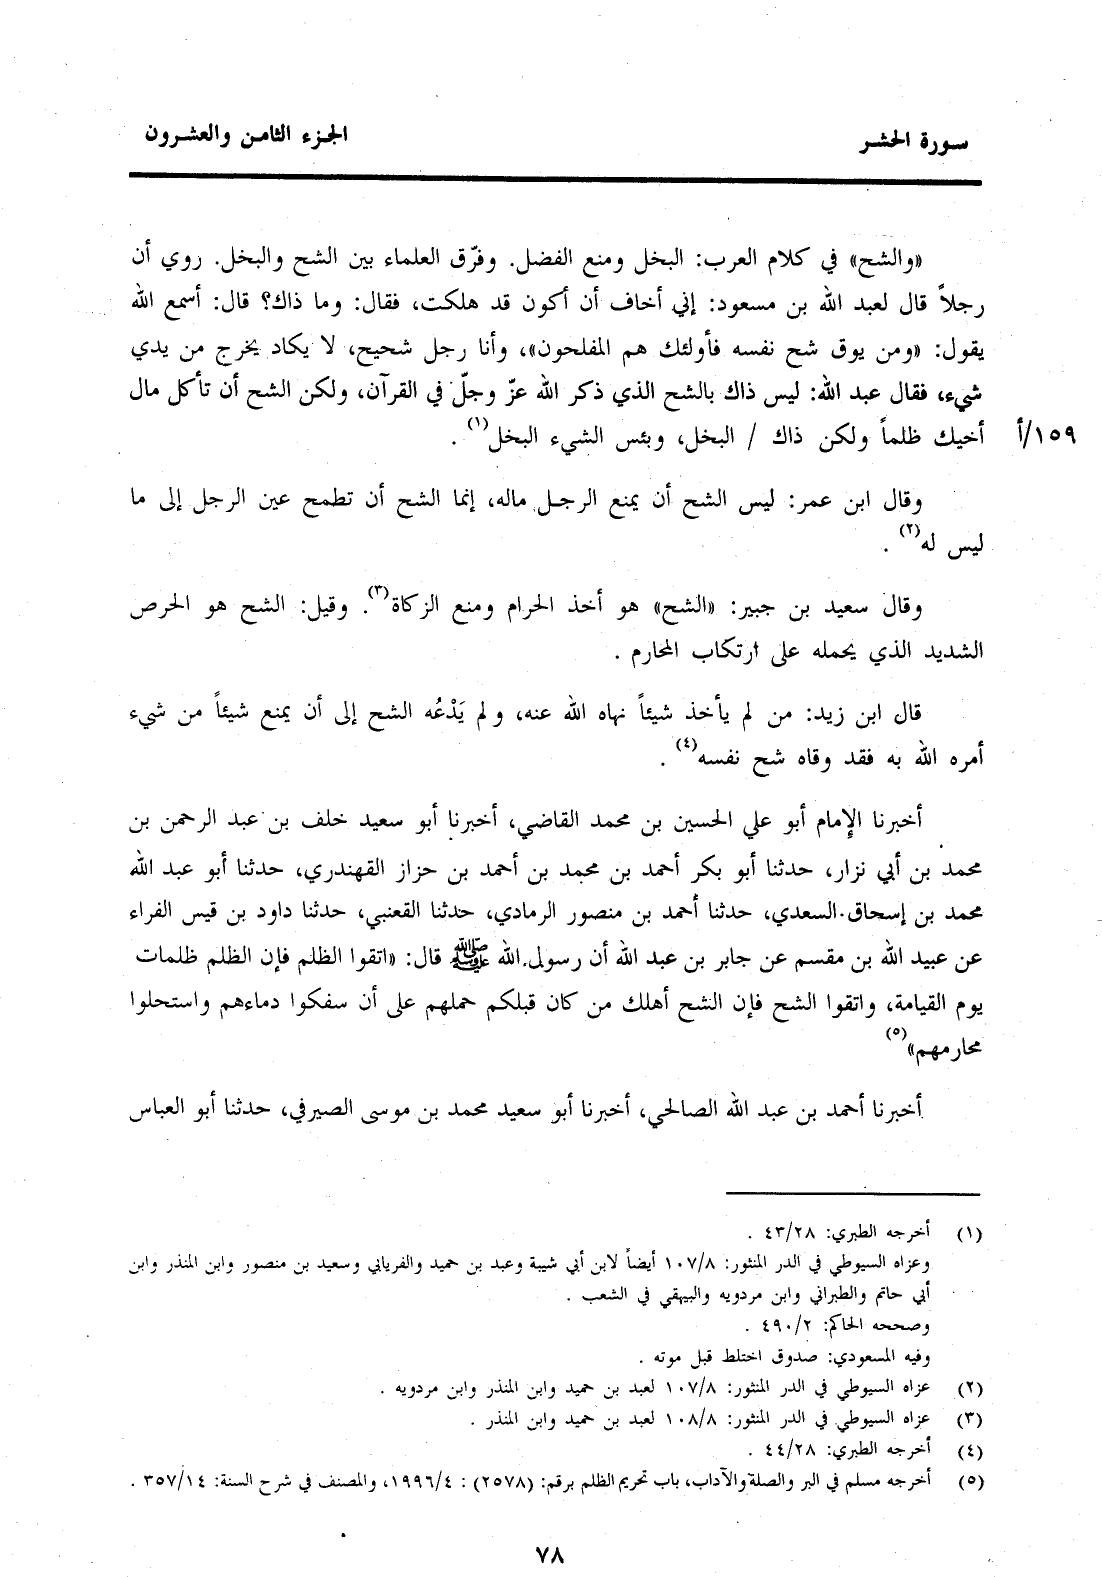 سورة الحشر
الجزء الثامن والعشرون
«والشح» في كلام العرب: البخل ومنع الفضل. وفرّق العلماء بين الشح والبخل. روي أن
رجلاً قال لعبد الله بن مسعود: إني أخاف أن أكون قد هلكت، فقال: وما ذاك؟ قال: أسمع الله
يقول: «ومن يوق شح نفسه فأولئك هم المفلحون»، وأنا رجل شحيح، لا يكاد يخرج من يدي
شيء، فقال عبد الله: ليس ذاك بالشح الذي ذكر الله عزّ وجلّ في القرآن، ولكن الشح أن تأكل مال
أخيك ظلماً ولكن ذاك / البخل، وبئس الشيء البخل(١) .
١٥٩/أ
وقال ابن عمر: ليس الشح أن يمنع الرجل ماله، إنما الشح أن تطمح عين الرجل إلى ما
ليس له(٢) .
وقال سعيد بن جبير: «الشح» هو أخذ الحرام ومنع الزكاة(٣). وقيل: الشح هو الحرص
الشديد الذي يحمله على ارتكاب المحارم .
قال ابن زيد: من لم يأخذ شيئاً نهاه الله عنه، ولم يَدْعُه الشح إلى أن يمنع شيئاً من شيء
أمره الله به فقد وقاه شح نفسه(٤) .
أخبرنا الإمام أبو علي الحسين بن محمد القاضي، أخبرنا أبو سعيد خلف بن عبد الرحمن بن
محمد بن أبي نزار، حدثنا أبو بكر أحمد بن محمد بن أحمد بن حزاز القهندري، حدثنا أبو عبد الله
محمد بن إسحاق السعدي، حدثنا أحمد بن منصور الرمادي، حدثنا القعنبي، حدثنا داود بن قيس الفراء
عن عبيد الله بن مقسم عن جابر بن عبد الله أن رسول الله ﷺ قال: «اتقوا الظلم فإن الظلم ظلمات
يوم القيامة، واتقوا الشح فإن الشح أهلك من كان قبلكم حملهم على أن سفكوا دماءهم واستحلوا
محارمهم»(٥)
أخبرنا أحمد بن عبد الله الصالحي، أخبرنا أبو سعيد محمد بن موسى الصيرفي، حدثنا أبو العباس
(١) أخرجه الطبري: ٤٣/٢٨ .
وعزاه السيوطي في الدر المنثور: ١٠٧/٨ أيضاً لابن أبي شيبة وعبد بن حميد والفريابي وسعيد بن منصور وابن المنذر وابن
أبي حاتم والطبراني وابن مردويه والبيهقي في الشعب .
وصححه الحاكم: ٤٩٠/٢ .
وفيه المسعودي: صدوق اختلط قبل موته .
(٢) عزاه السيوطي في الدر المنثور: ١٠٧/٨ لعبد بن حميد وابن المنذر وابن مردويه .
(٣) عزاه السيوطي في الدر المنثور: ١٠٨/٨ لعبد بن حميد وابن المنذر .
(٤) أخرجه الطبري: ٤٤/٢٨ .
(٥) أخرجه مسلم في البر والصلة والآداب، باب تحريم الظلم برقم: (٢٥٧٨) : ١٩٩٦/٤، والمصنف في شرح السنة: ٣٥٧/١٤ .
٧٨